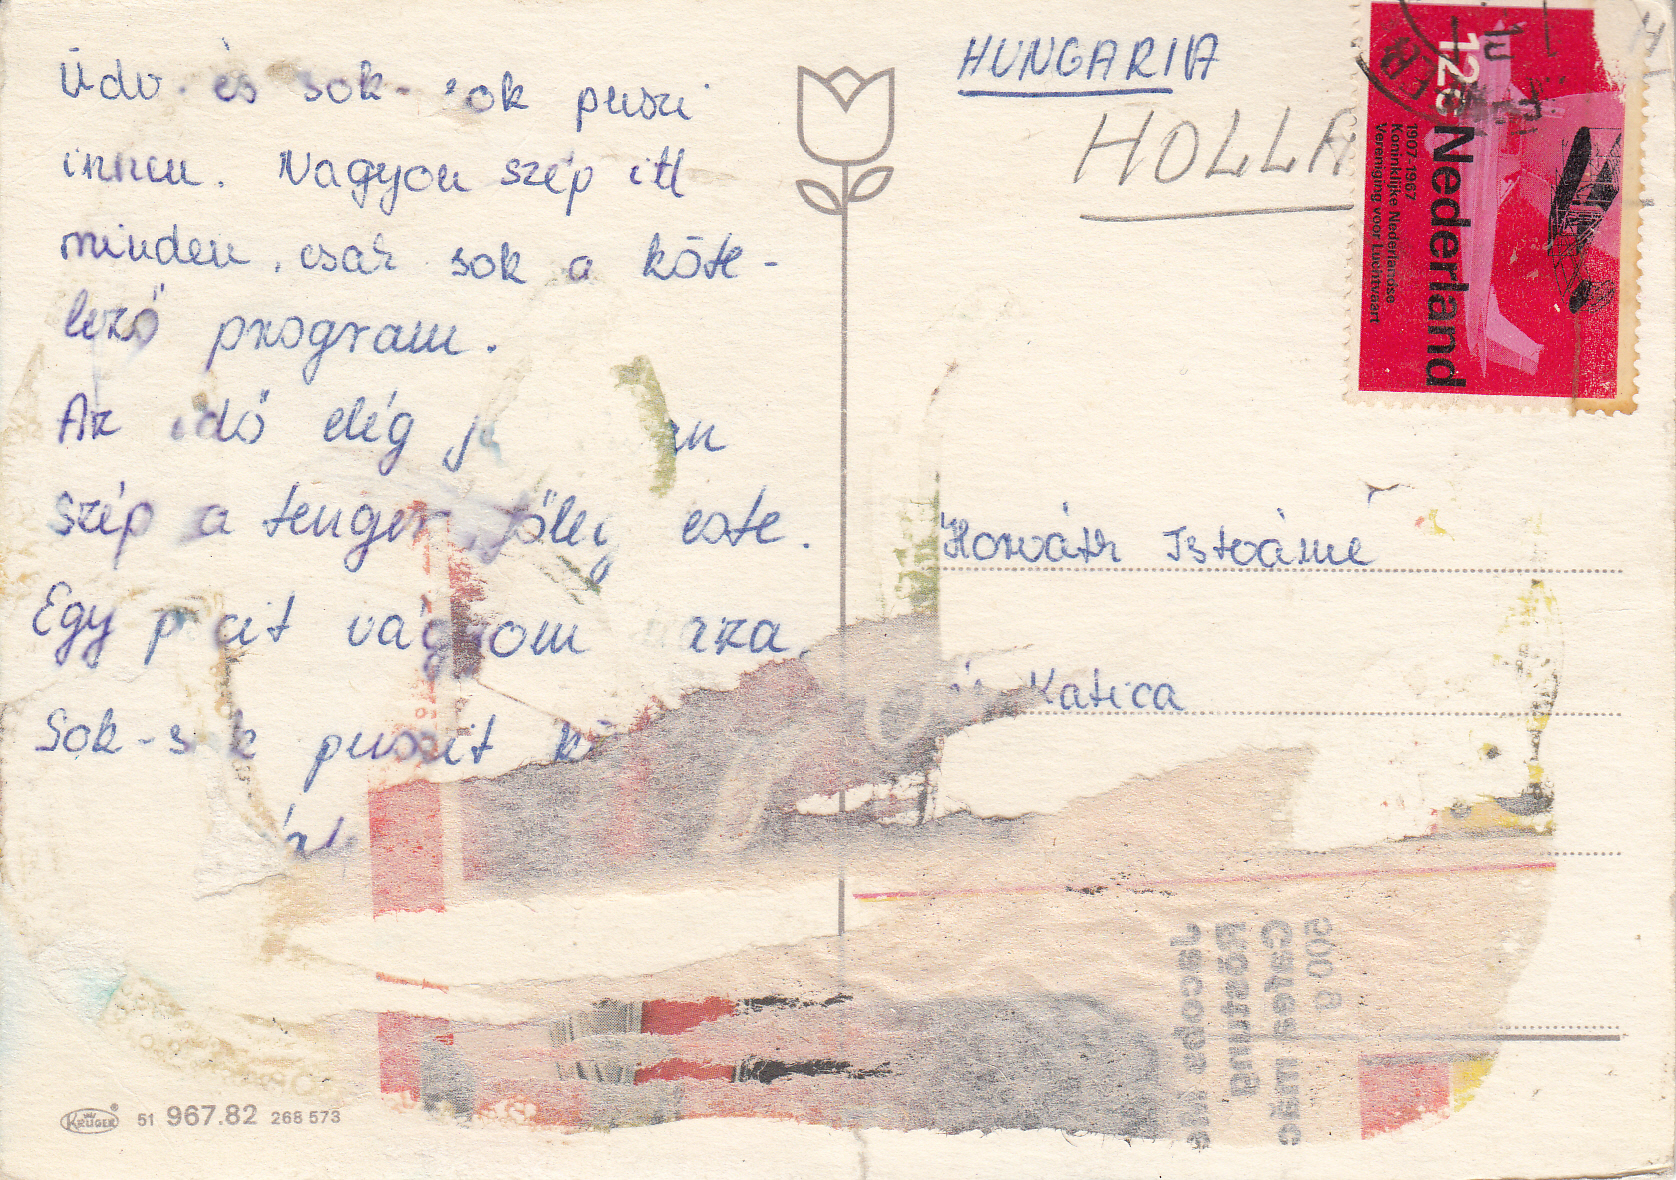 Üdv. és sok-sok puszi
innen. Nagyon szép itt
minden, csak sok a köte-
lező program.
Az idő elég
szép a tenger, főleg este.
Egy vágyom haza.
Sok-sok puszit
HUNGARIA
HOLLA
12c Nederland
1907-1967
Koninklijke Nederlandse
Vereniging voor Luchtvaart
Horváth Istvánné
Katica
500 g
Cafea
Röstung
Jacobs
KRÜGER 51 967.82 268 573